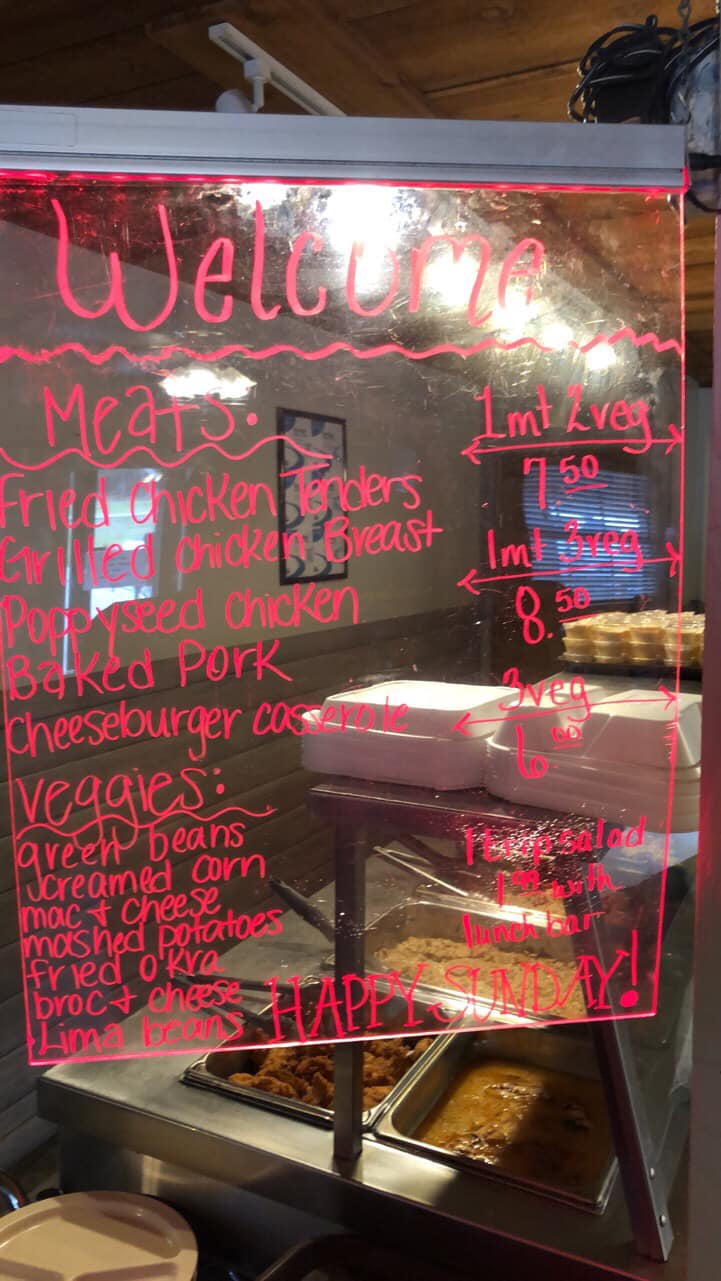 Welcome
Meats:
Fried Chicken Tenders
Grilled Chicken Breast
Poppyseed Chicken
Baked Pork
Cheeseburger casserole
veggies:
green beans
creamed corn
mac + cheese
mashed potatoes
fried okra
broc + cheese
Lima beans
1mt 2veg
7.50
1mt 3veg
8.50
3veg
6.00
1 trip salad
1.99 with
lunch bar
HAPPY SUNDAY!